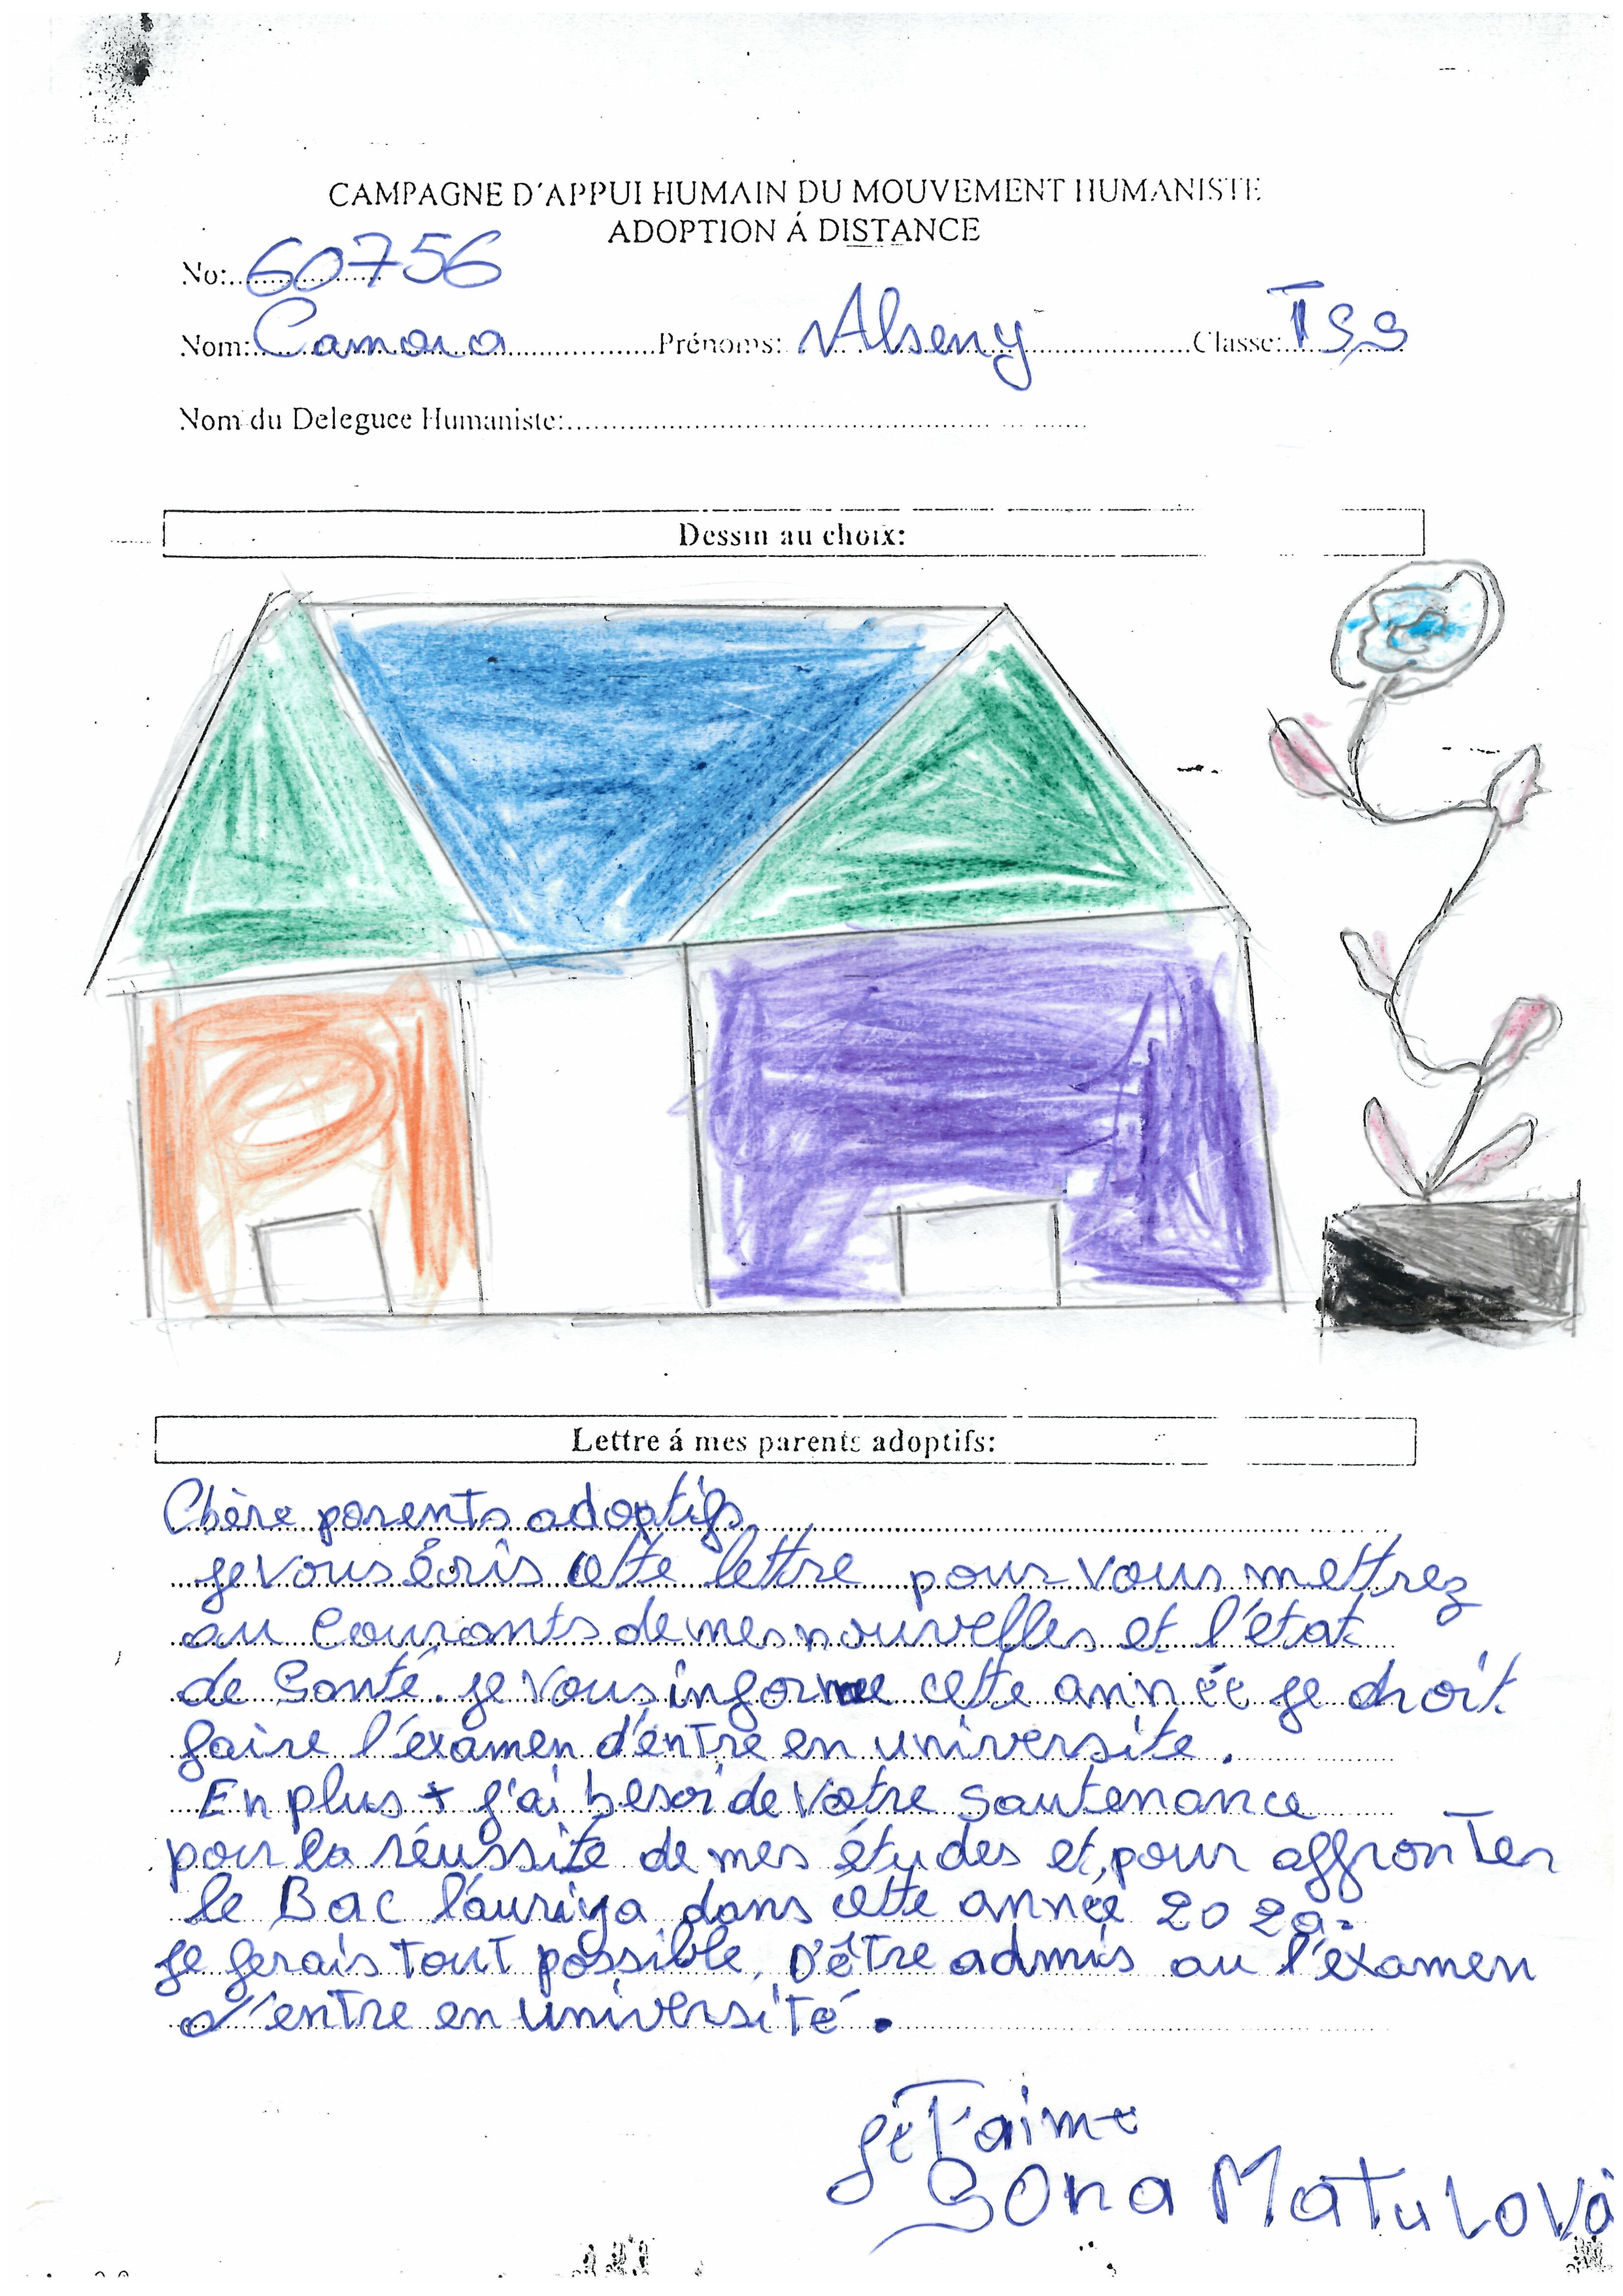 CAMPAGNE D'APPUI HUMAIN DU MOUVEMENT HUMANISTE
ADOPTION Á DISTANCE
No: 60756
Nom: Camara Prénoms: Alseny Classe: TSS
Nom du Deleguee Humaniste:
Dessin au choix:
Lettre á mes parents adoptifs:
Chère parents adoptifs
je vous écris cette lettre pour vous mettrez
au courants de mes nouvelles et l'état
de Santé. je vous informe cette année je droit
faire l'éxamen d'entre en universite.
En plus + j'ai besoi de votre Soutenance
pour la réussite de mes études et, pour affronter
le Bac dans cette année
je ferais tout possible, D'être admis au l'éxamen
d'entre en université.
je t'aime
SOna MatuLová